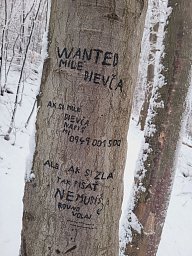 WANTED
MILÉ
DIEVČA
AK SI MILÉ
DIEVČA
NAPÍŠ
MI
0949 001 500
ALE AK SI ZLÁ
TAK PÍSAŤ
NEMUSÍŠ
ROVNO
VOLAJ